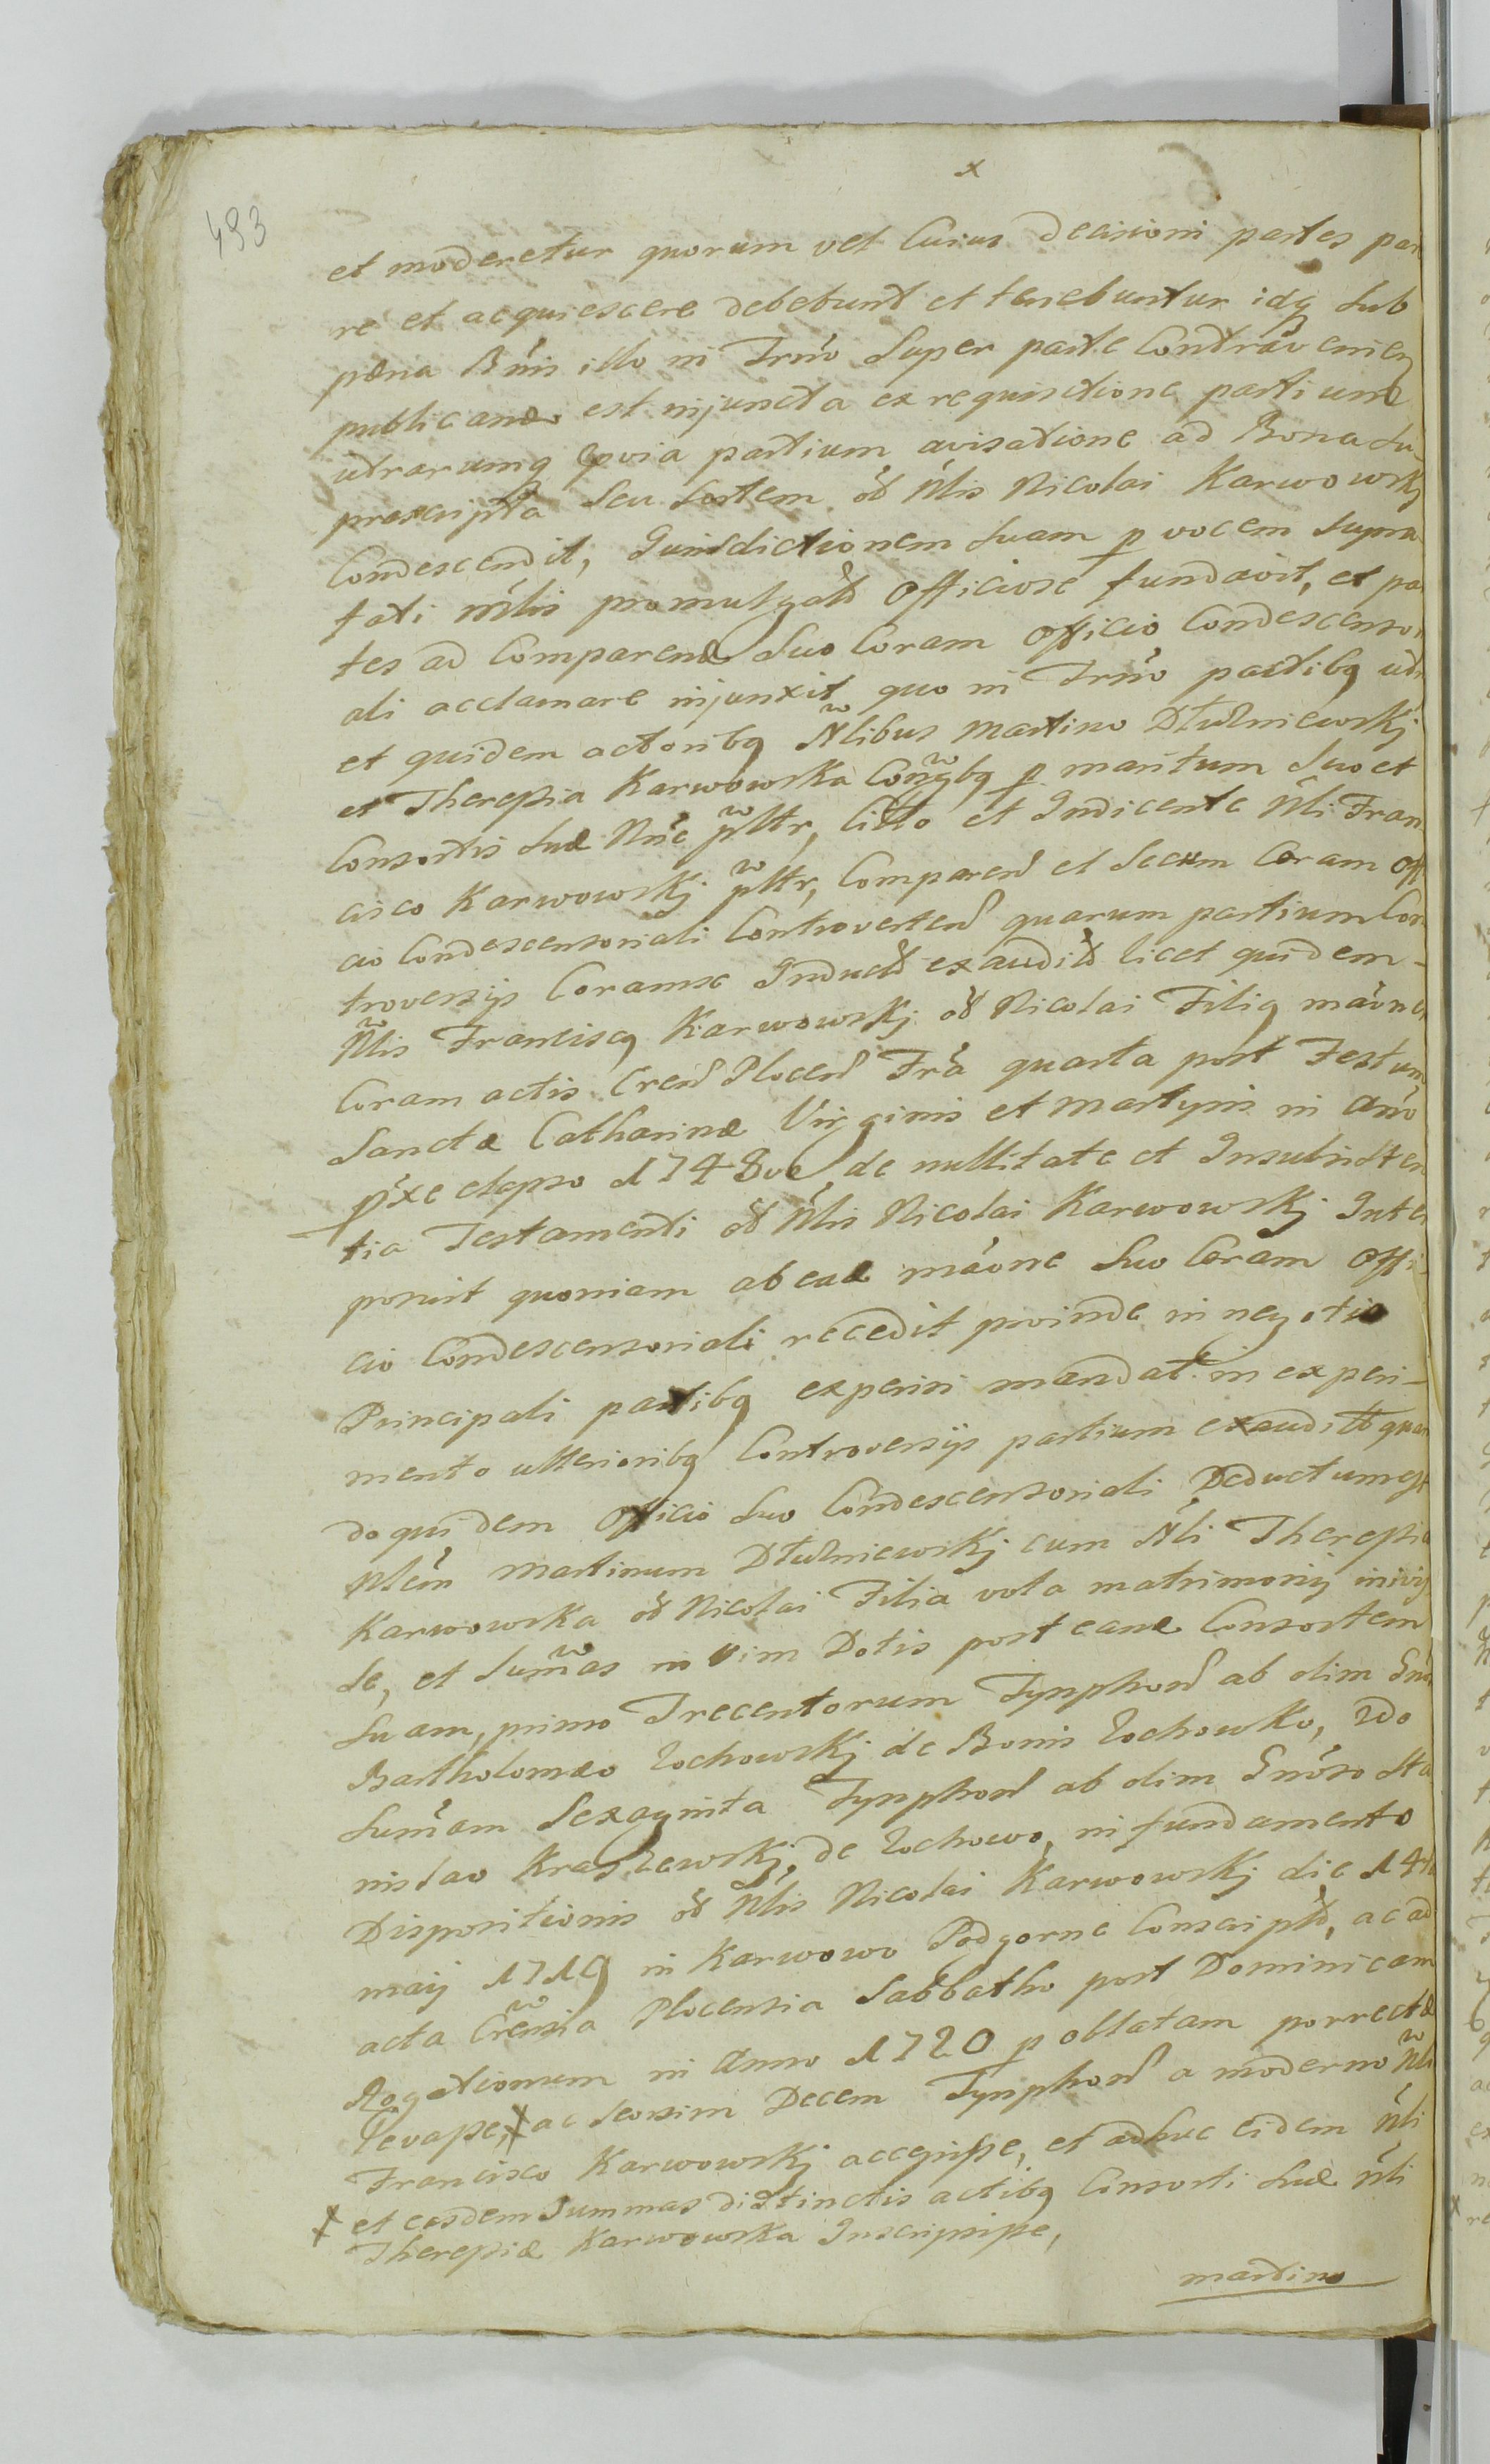 x
493
et moderetur quorum vel Cuius decisioni partes pare
re et acquiescere debebunt et tenebuntur idq sub
pæna Bnis illo in Trno super parte Contravenien
publicand est injuncta ex requisitione partium
utrarumq prvia partium avisatione ad Bona su-
prascripta seu sortem od Nlis Nicolai Karwowskj
Condescendit, Jurisdictionem suam p vocem supra
fati mlis promulgatd Officiose fundavit, et par
tes ad Comparend Suo Coram Officio Condescensori
ali acclamare injunxit quo in Trno partibq utr
et quidem actoribq Nlibus Martino Dłużniewskj
et Theresia Karwowska Congbq p maritum suo et
Consortis suæ Nne psltr, Citto et Indicente Nli Fran
cisco Karwowskj psltr, Comparend et secum Coram Offi
cio Condescensoriali Controvertend quarum partium Con
troversijs Coramse Inductd exauditd licet quidem-
Nlis Franciscq Karwowskj od Nicolai Filiq mavne
Coram actis Crend Plocend Fra quarta post Festum
Sanctæ Catharinæ Virginis et Martyris in Ano
pxe elapso 1748vo, de nullitate et Insubsisten
tia Testamenti od Nlis Nicolai Karwowskj Inter
posuit quoniam ab ead mavne suo Coram Offi-
cio Condescensoriali recedit proinde in negotio
Principali partibq experiri mandat. in experi-
mento ulterioribq Controversijs partium exauditd quan
doquidem Officio suo Condescensoriali Deductum est
Nlem Martinum Dłużniewskj cum Nli Theresia
Karwowska od Nicolai Filia vota matrimonij inivis
se, et Sumas in vim Dotis post eand Consortem
suam, primo Trecentorum Tynphond ab olim Gnso
Bartholomæo Zochowskj de Bonis Zochowko, 2do
Sumam Sexaginta Tynphond ab olim Gnoso Sta
nislao Kraszewskj, de Zochowo, in fundamento
Dispositionis od Nlis Nicolai Karwowskj die 14ta
Maij 1719 in Karwowo Podgorne Conscriptd, ac ad
acta Crensia Plocensia Sabbatho post Dominicam
Rogationum in Anno 1720 p oblatam porrectæ
Levasse, x ac seorsim Decem Tynphond a moderno Nli
Francisco Karwowskj accepisse, et adhuc eidem Nli
x et easdem Summas distinctis actibq Consorti suæ Nli
Theresiæ Karwowska Inscripsisse,
Martino